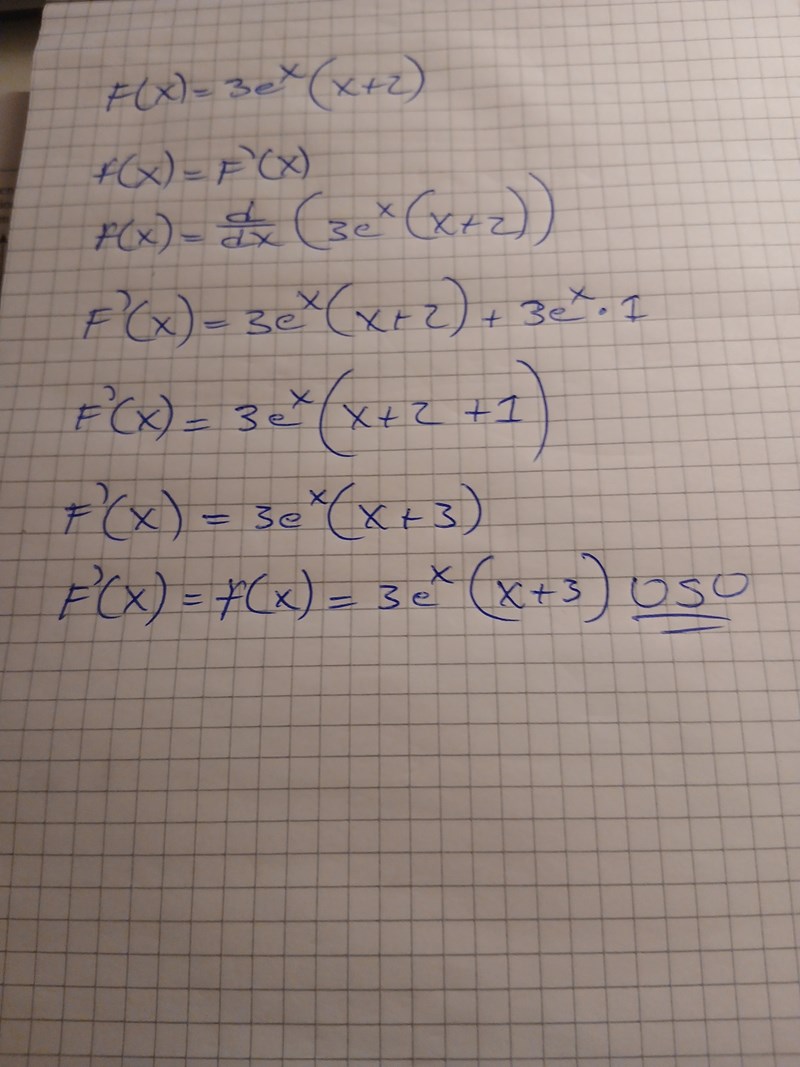 F(x) = 3eˣ(x+2)
f(x) = F'(x)
f(x) = d/dx (3eˣ(x+2))
F'(x) = 3eˣ(x+2) + 3eˣ · 1
F'(x) = 3eˣ(x+2 +1)
F'(x) = 3eˣ(x+3)
F'(x) = f(x) = 3eˣ(x+3) OSO